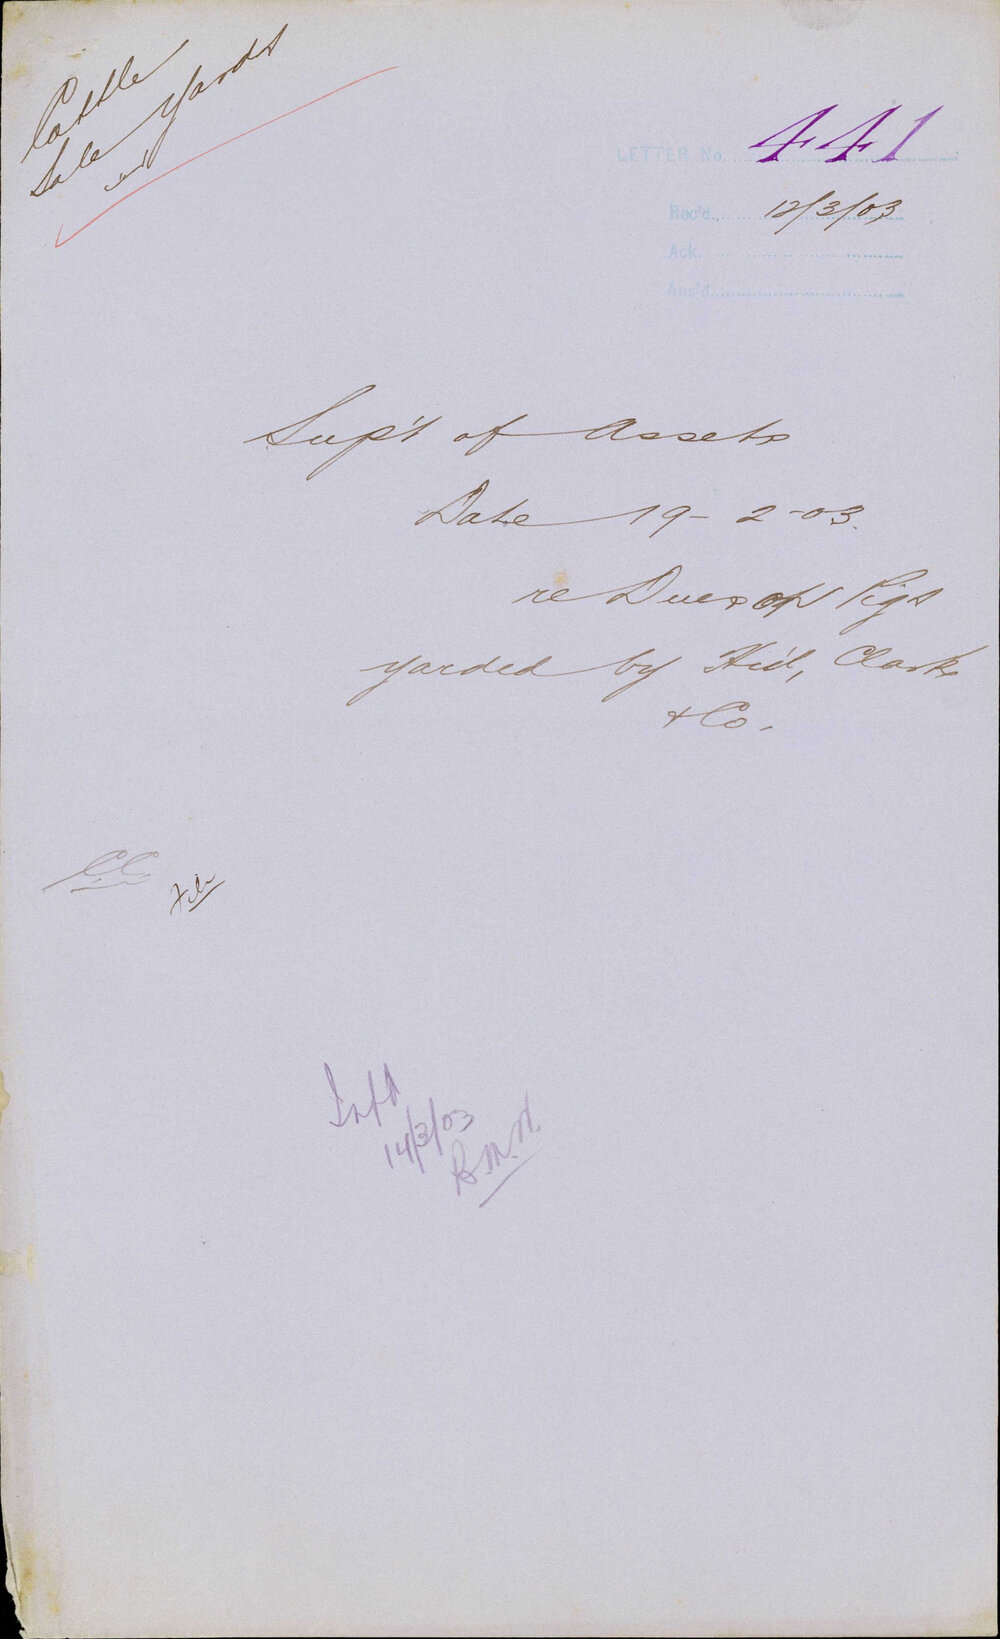 Cattle
Sale Yards
LETTER No. 441
Rec'd. 12/3/03
Ack.
Ans'd.
Sup't of Assets
Date 19-2-03.
re Dues on Pigs
yarded by Hill, Clark
& Co.
File
14/3/03